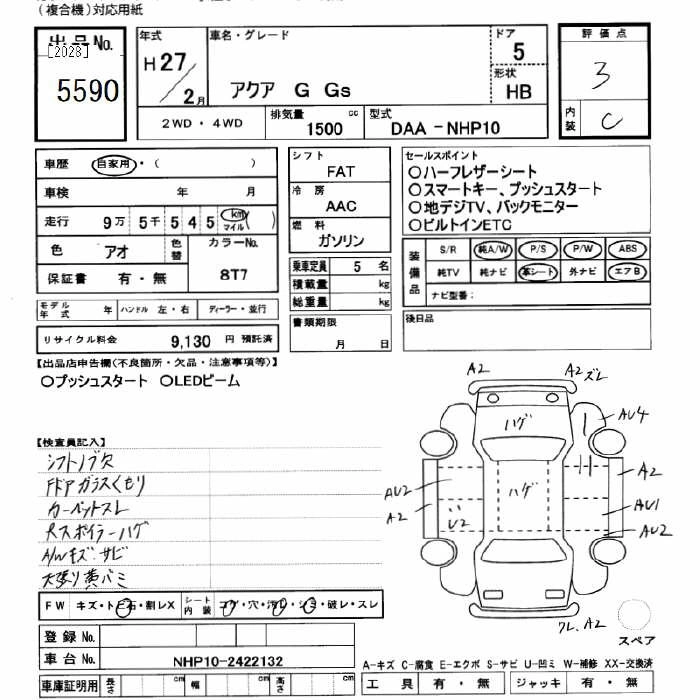 (複合機)対応用紙
出品No.
[2023]
5590
年式
H27/2月
車名・グレード
アクア G Gs
ドア
5
形状
HB
評価点
3
内装
C
2WD・4WD
排気量
1500 cc
型式
DAA-NHP10
車歴 自家用・( )
車検 年 月
走行 9万 5千 5 4 5 km マイル ( )
色 アオ
色替
カラーNo.
8T7
保証書 有・無
シフト
FAT
冷房
AAC
燃料
ガソリン
乗車定員 5 名
積載量 kg
総重量 kg
書類期限
月 日
セールスポイント
○ハーフレザーシート
○スマートキー、プッシュスタート
○地デジTV、バックモニター
○ビルトインETC
装備品
S/R 純A/W P/S P/W ABS
純TV 純ナビ 革シート 外ナビ エアB
ナビ型番:
後日品
モデル年式 年 ハンドル 左・右 ディーラー・並行
リサイクル料金 9,130 円 預託済
【出品店申告欄(不良箇所・欠品・注意事項等)】
○プッシュスタート ○LEDビーム
【検査員記入】
シフトノブ欠
Fドアガラスくもり
カーペットスレ
Rスポイラーハゲ
A/Wキズ・サビ
天張り黄バミ
FW キズ・トビ石・割レX
シート内装 コゲ・穴・汚レ・シミ・破レ・スレ
登録No.
車台No. NHP10-2422132
車庫証明用 長さ cm 幅 cm 高さ cm
A2
A2 ズレ
ハゲ
AU4
A2
AU2
A2
U2
ハゲ
AU1
AU2
ワレ、A2
スペア
A-キズ C-腐食 E-エクボ S-サビ U-凹ミ W-補修 XX-交換済
工具 有・無 ジャッキ 有・無